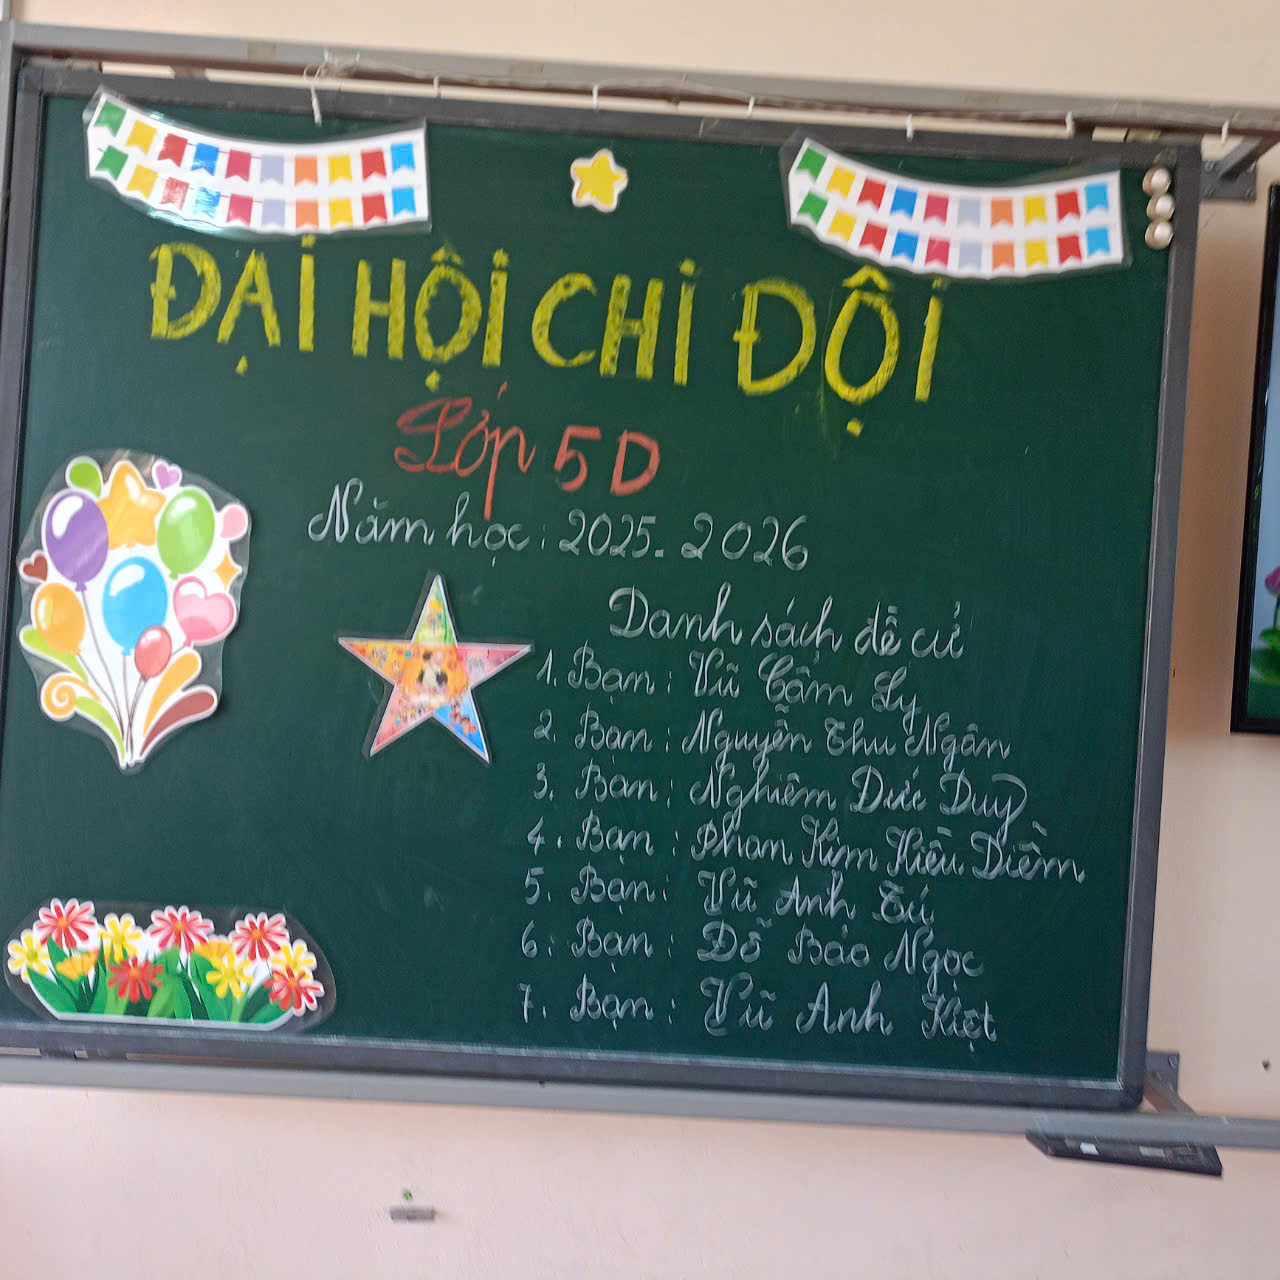 ĐẠI HỘI CHI ĐỘI
Lớp 5D
Năm học: 2025-2026
Danh sách đề cử
1. Bạn: Vũ Cẩm Ly
2. Bạn: Nguyễn Thu Ngân
3. Bạn: Nghiêm Đức Duy
4. Bạn: Phan Kim Kiều Diễm
5. Bạn: Vũ Anh Tú
6. Bạn: Đỗ Bảo Ngọc
7. Bạn: Vũ Anh Kiệt